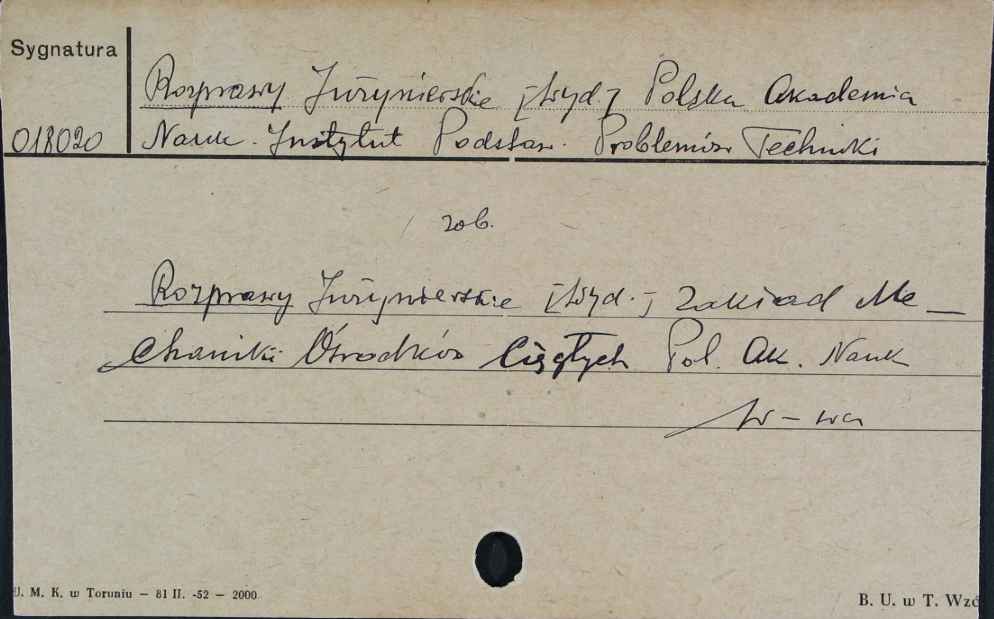 Sygnatura
Rozprawy Inżynierskie [Wyd.] Polska Akademia
018020 Nauk. Instytut Podstaw. Problemów Techniki
zob.
Rozprawy Inżynierskie [Wyd.] Zakład Me-
chaniki Ośrodków Ciągłych Pol. Ak. Nauk
W-wa
U. M. K. w Toruniu — 81 II. -52 — 2000
B. U. w T. Wzó